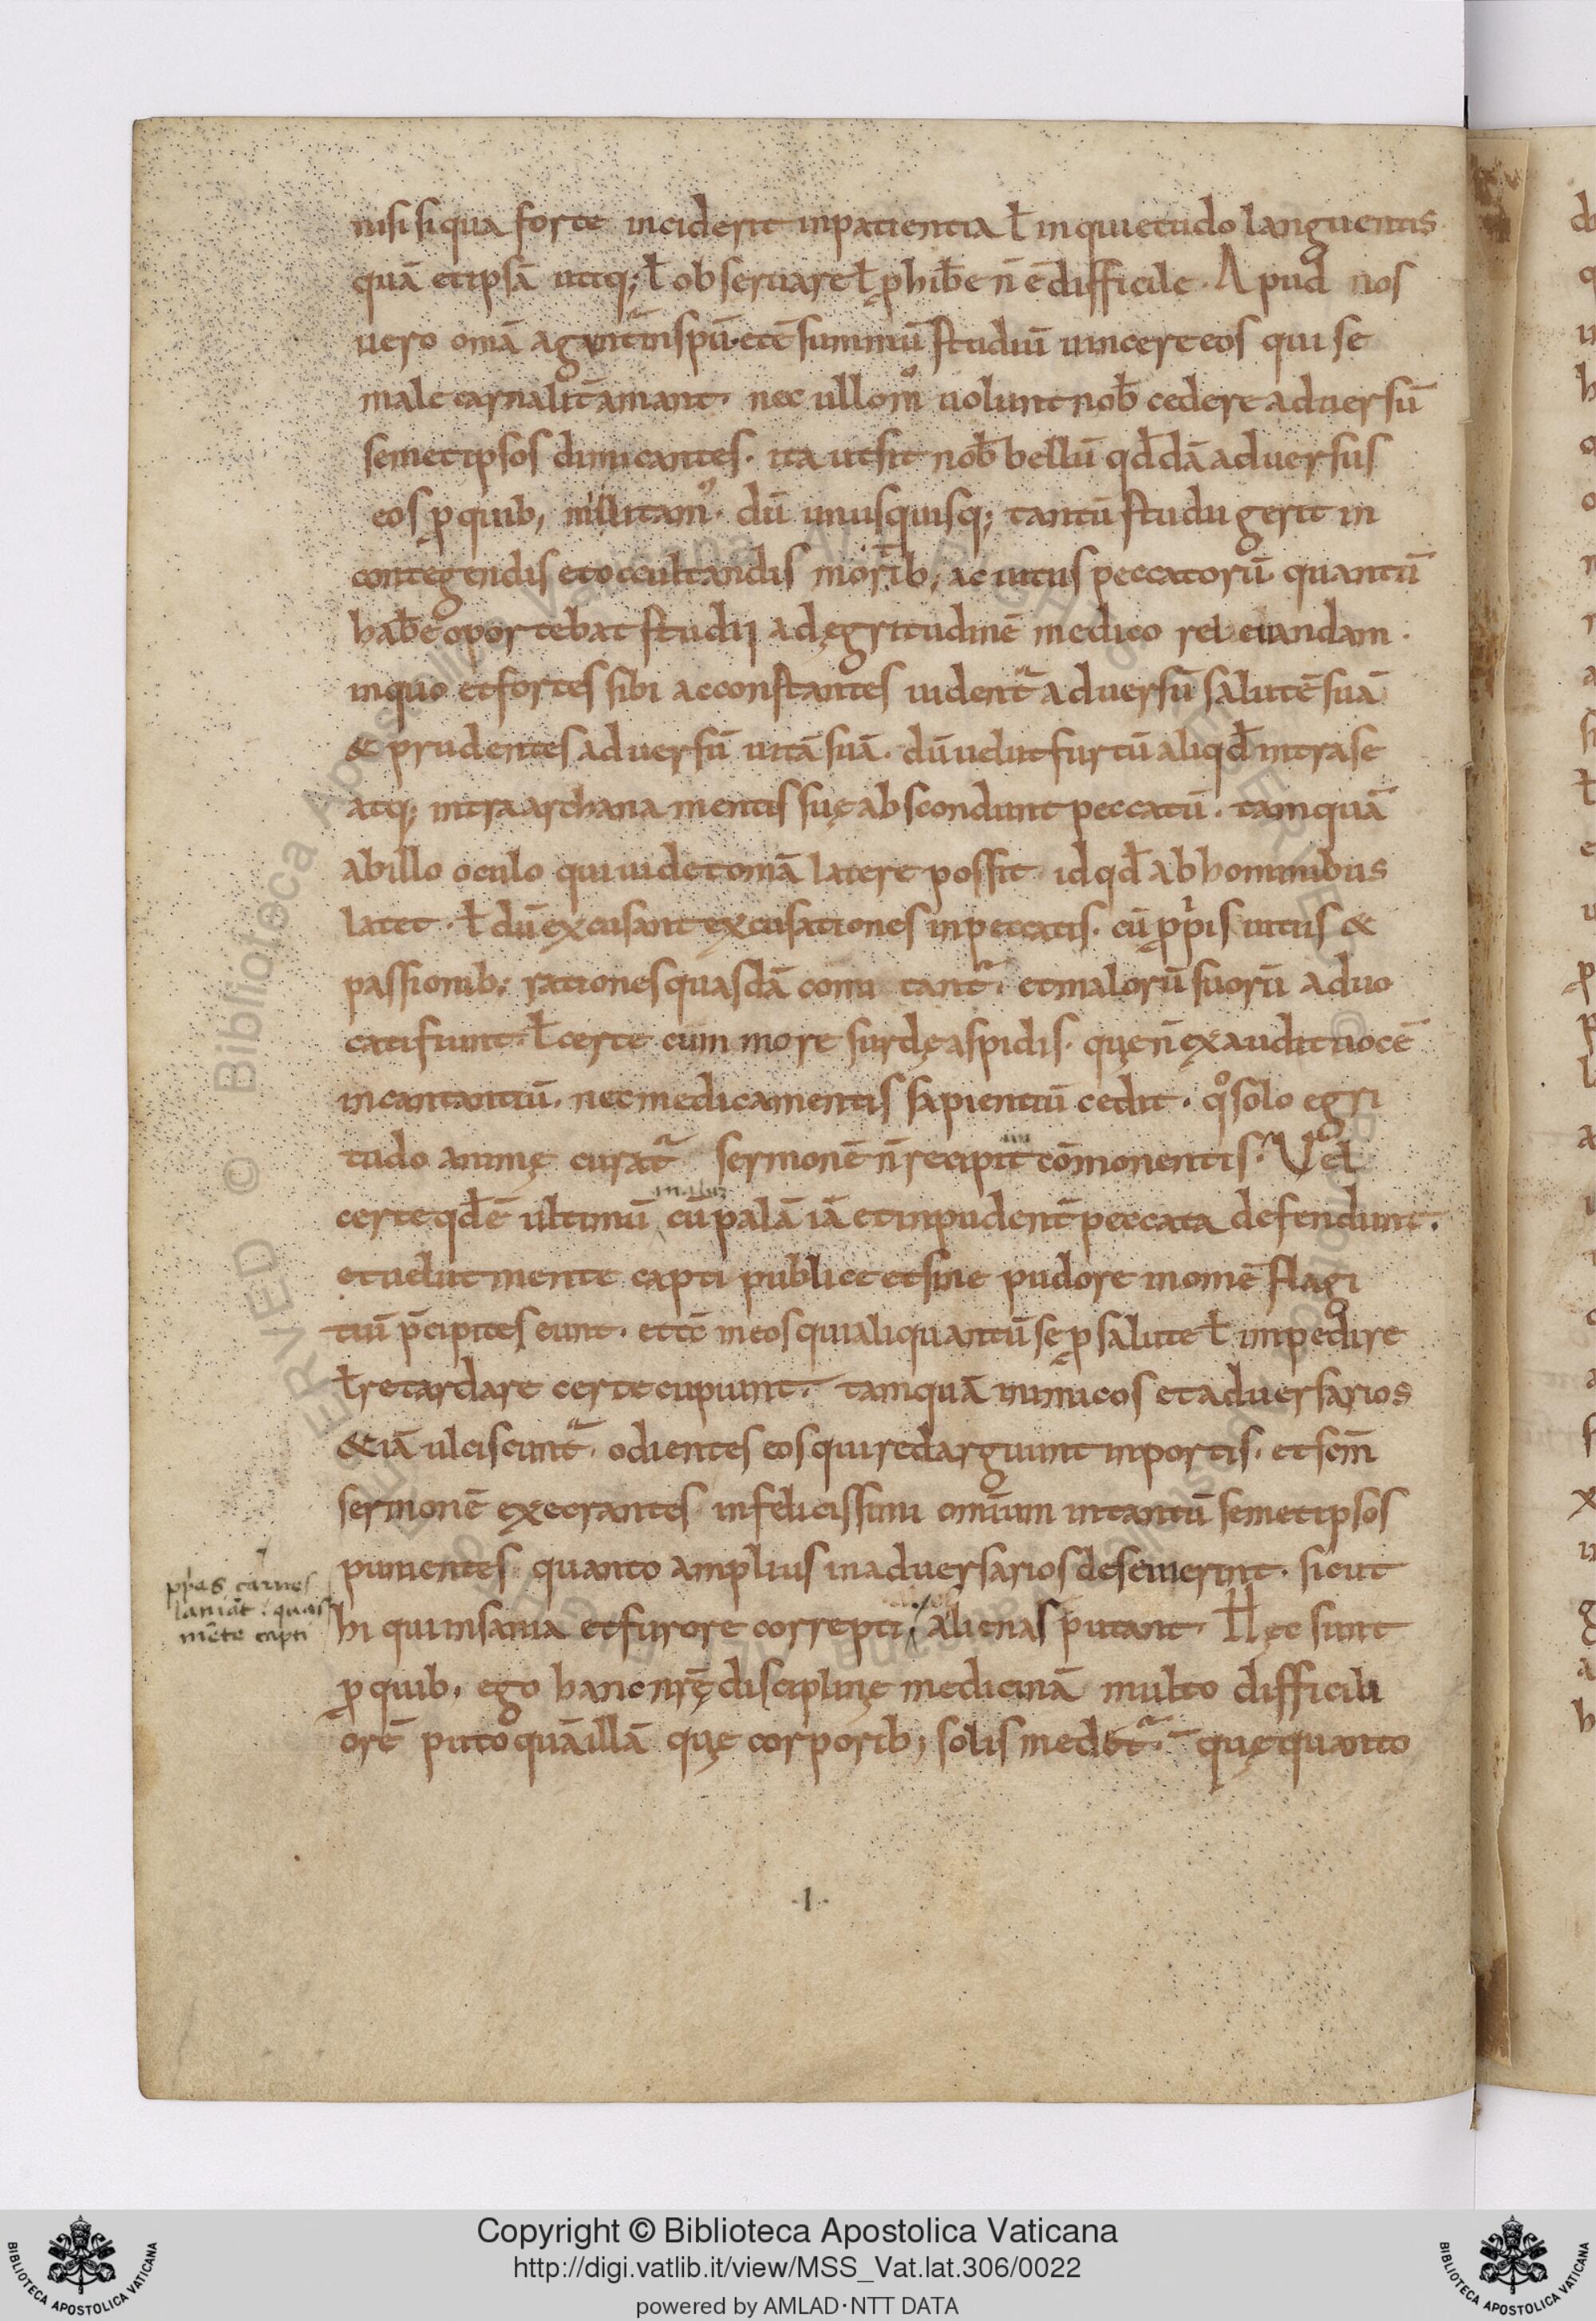 nisi siqua forte inciderit inpatientia ł inquietudo languentis
quā et ipsā utiq; ł obseruare ł ꝓhib̄e n̄ ē difficile. Apud nos
uero om̄a agunt᷑ in sp̄u. et ē summū studiū uincere eos qui se
male carnalit̄ amant. nec ullo mº uolunt nob̄ cedere aduersū
semetipsos dimicantes. ita ut sit nob̄ bellū qd̄dā aduersus
eos ꝓ quib; militamꝰ. dū unusquisq; tantū studii gerit in
contegendis et occultandis morib; ac uitiis peccatorū quantū
hab̄e oportebat studii ad ęgritudinē medico releuandam.
in quo et fortes sibi ac constantes uident᷑ aduersū salutē suā
& prudentes aduersū uitā suā. dū uelut furtū aliqd̄ intra se
atq; intra archana mentis suę abscondunt peccatū. tamquā
ab illo oculo qui uidet om̄a latere possit id qd̄ ab hominibus
latet. ł dū excusant excusationes in peccatis. cū ꝓpriis uitiis &
passionib; rationes quasdā com̄ tant᷑. et malorū suorū aduo
cati fiunt. ł certe cum more surdę aspidis. quę n̄ exaudit uocē
incantantiū. nec medicamentis sapientiū cedit. qº solo egri
tudo animę curat᷑ sermonē n̄ recipit cōmonentis. Vel
certe qd̄ ē ultimū malū cū palā iā et inpudent̄ peccata defendunt.
et uelut mente capti publice et sine pudore in omē flagi
tiū p̄cipites eunt. et tc̄ in eos qui aliquantū se ꝓ salute ł impedire
ł retardare certe cupiunt. tamquā inimicos et aduersarios
& iā ulciscunt᷑. odientes eos qui redarguunt in portis. et scm̄
sermonē execrantes infelicissimi omium in tantū semetipsos
punientes quanto amplius in aduersarios deseuierint. sicut
ꝓprias carnes
laniāt. quas
mēte capti
hi qui insania et furore correpti alienas putant. Hęc sunt
ꝓ quib; ego hanc nr̄ę disciplinę medicinā multo difficili
orē puto quā illā quę corporib; solis medet᷑. quę quanto
.I.
Copyright © Biblioteca Apostolica Vaticana
http://digi.vatlib.it/view/MSS_Vat.lat.306/0022
powered by AMLAD·NTT DATA
BIBLIOTECA APOSTOLICA VATICANA
BIBLIOTECA APOSTOLICA VATICANA